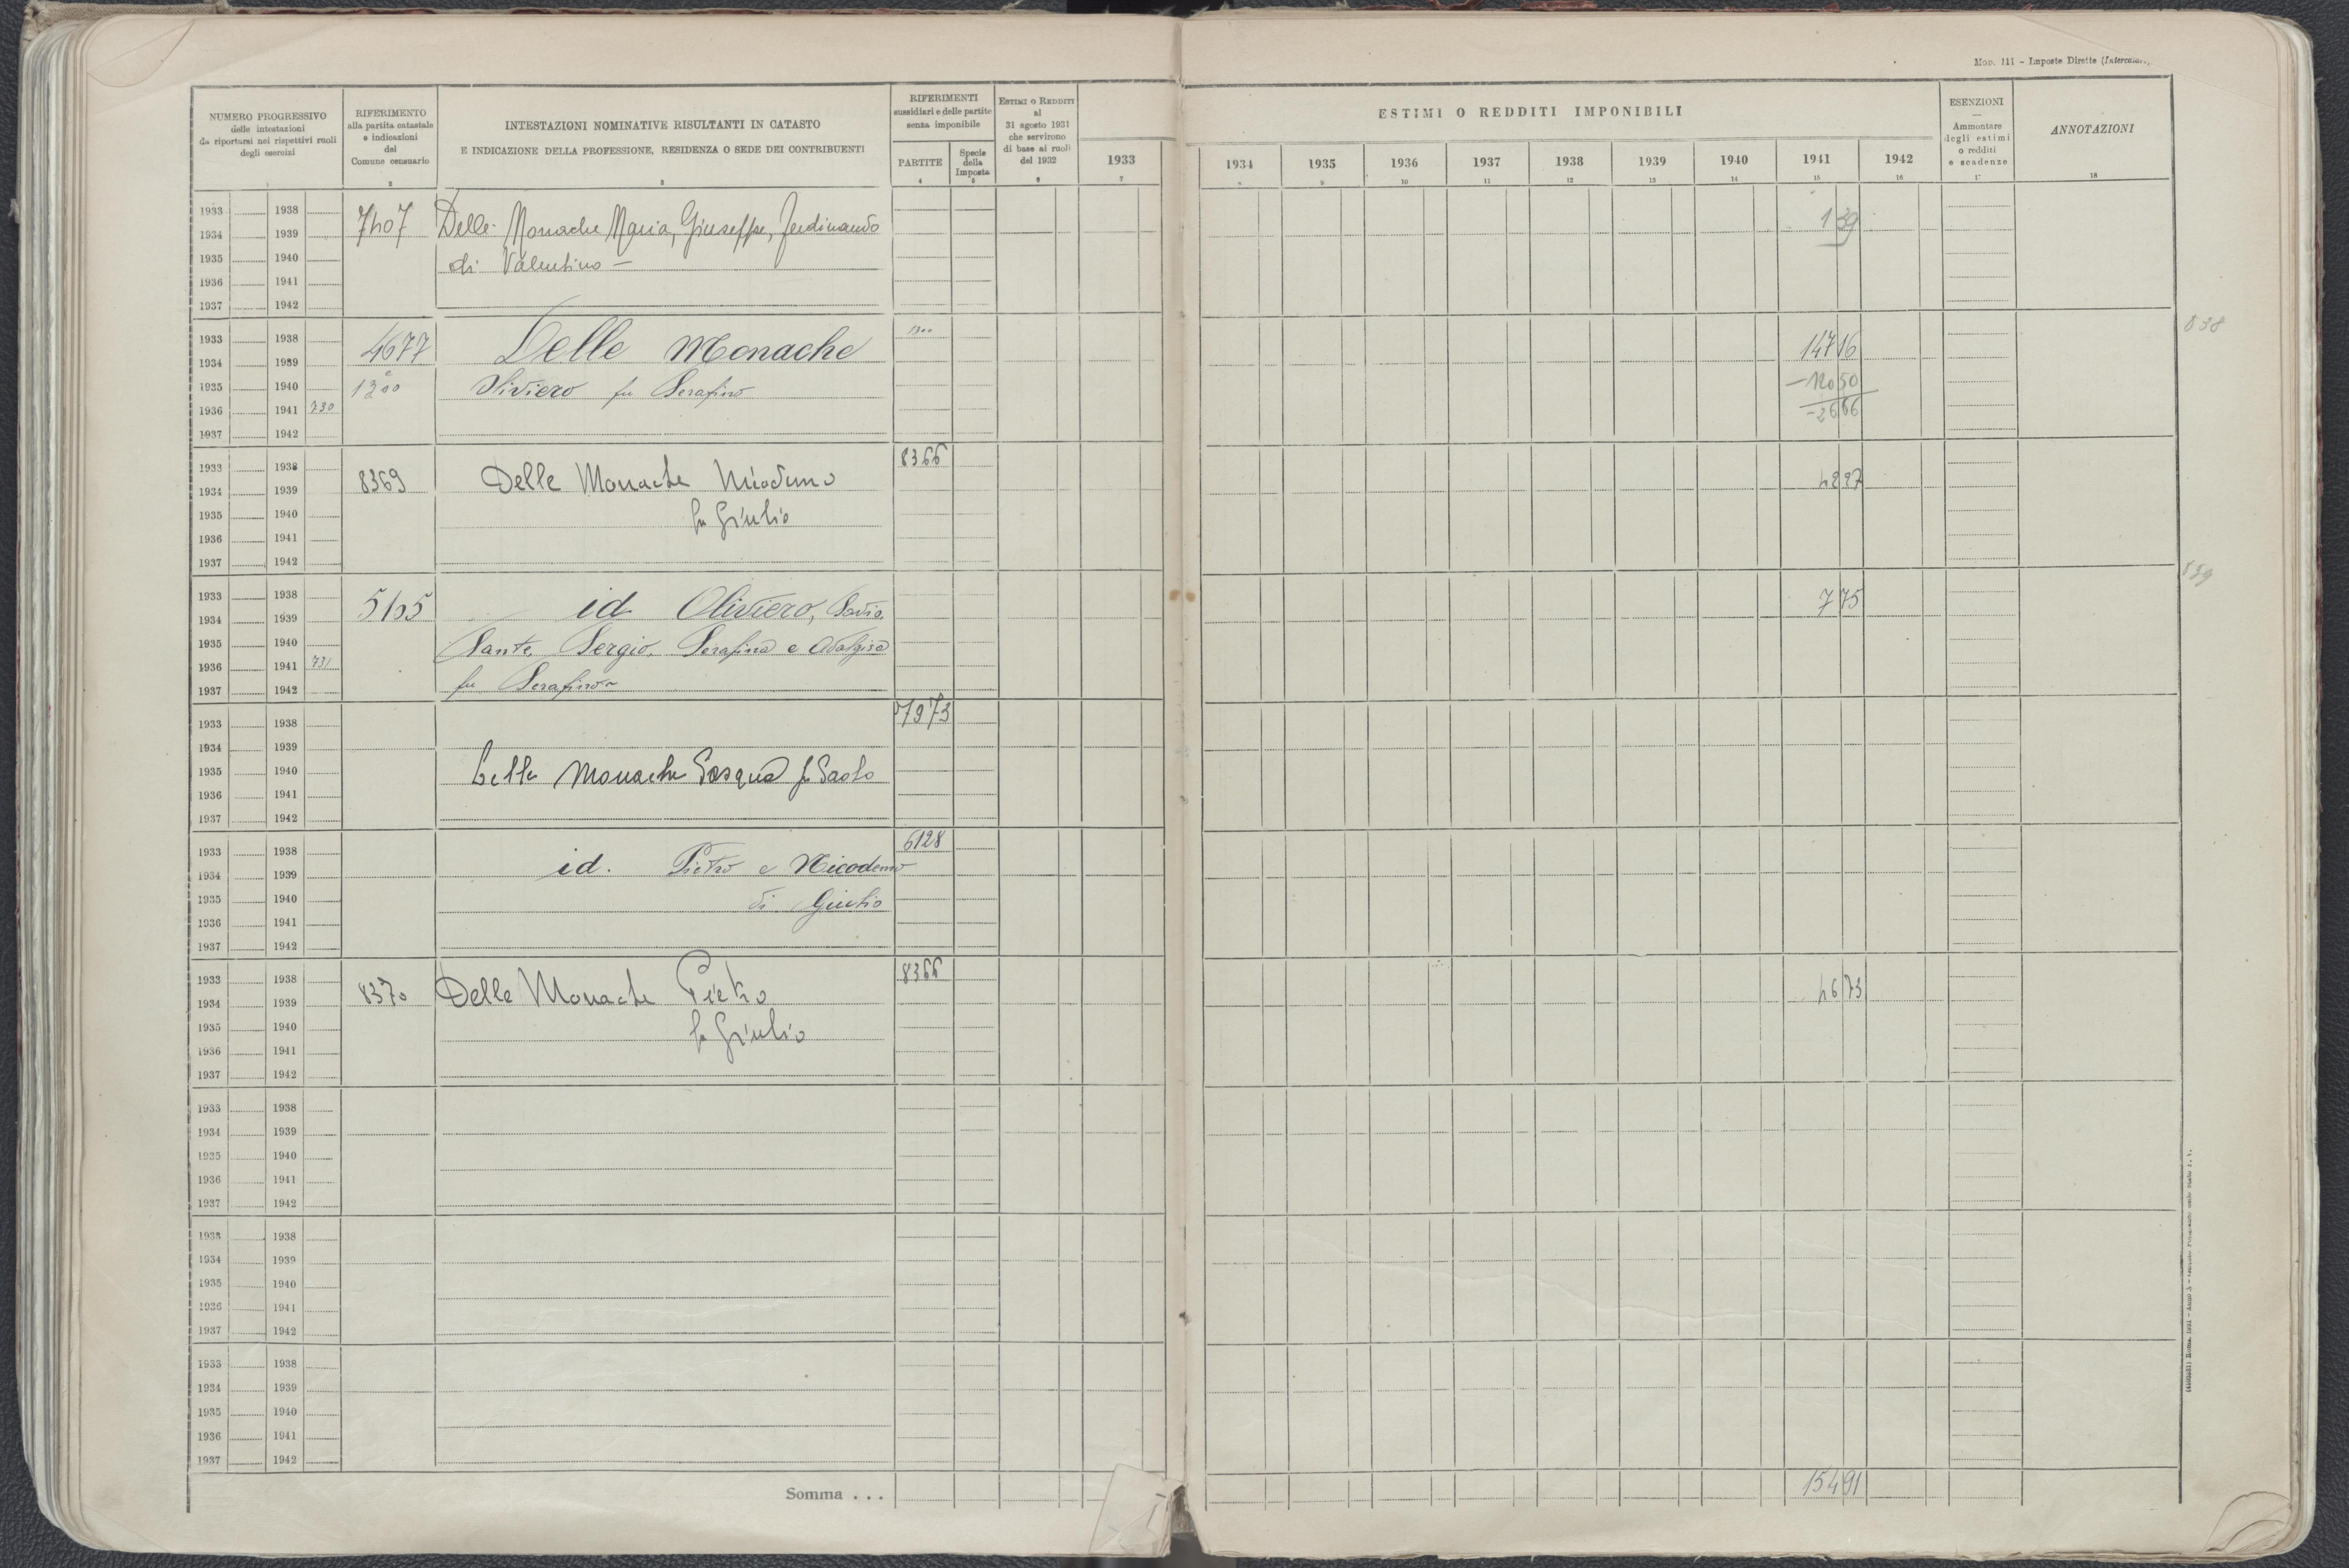 Mod. 111 - Imposte Dirette
NUMERO PROGRESSIVO
delle intestazioni
da riportarsi nei rispettivi ruoli
degli esercizi
1
RIFERIMENTO
alla partita catastale
e indicazioni
del
Comune censuario
2
INTESTAZIONI NOMINATIVE RISULTANTI IN CATASTO
E INDICAZIONE DELLA PROFESSIONE, RESIDENZA O SEDE DEI CONTRIBUENTI
3
RIFERIMENTI
sussidiari e delle partite
senza imponibile
PARTITE
4
Specie
della
Imposta
5
ESTIMI O REDDITI
al
31 agosto 1931
che servirono
di base ai ruoli
del 1932
6
ESTIMI O REDDITI IMPONIBILI
1933 1934 1935 1936 1937 1938 1939 1940 1941 1942
7 9 10 11 12 13 14 15 16
ESENZIONI
Ammontare
degli estimi
o redditi
e scadenze
17
ANNOTAZIONI
18
1933 1938
1934 1939 7407 Delle Monache Maria, Giuseppe, Ferdinando 139
1935 1940 di Valentino
1936 1941
1937 1942
1933 1938 1300 838
1934 1939 4677 Delle Monache 14716
1935 1940 1300 Oliviero fu Serafino -12050
1936 1941 730 -2666
1937 1942
1933 1938 8366
1934 1939 8369 Delle Monache Nicodemo
1935 1940 fu Giulio
1936 1941
1937 1942
1933 1938 839
1934 1939 id Oliviero, Savio, 775
1935 1940 Sante, Sergio, Serafina e Adalgisa
1936 1941 731
1937 1942 fu Serafino
1933 1938
1934 1939
1935 1940 Delle Monache Pasqua fu Paolo
1936 1941
1937 1942
1933 1938 6128
1934 1939 id. Pietro e Nicodemo
1935 1940 di Giulio
1936 1941
1937 1942
1933 1938 8366
1934 1939 8370 Delle Monache Pietro 4673
1935 1940 fu Giulio
1936 1941
1937 1942
1933 1938
1934 1939
1935 1940
1936 1941
1937 1942
1933 1938
1934 1939
1935 1940
1936 1941
1937 1942
1933 1938
1934 1939
1935 1940
1936 1941
1937 1942
Somma . . . 15491